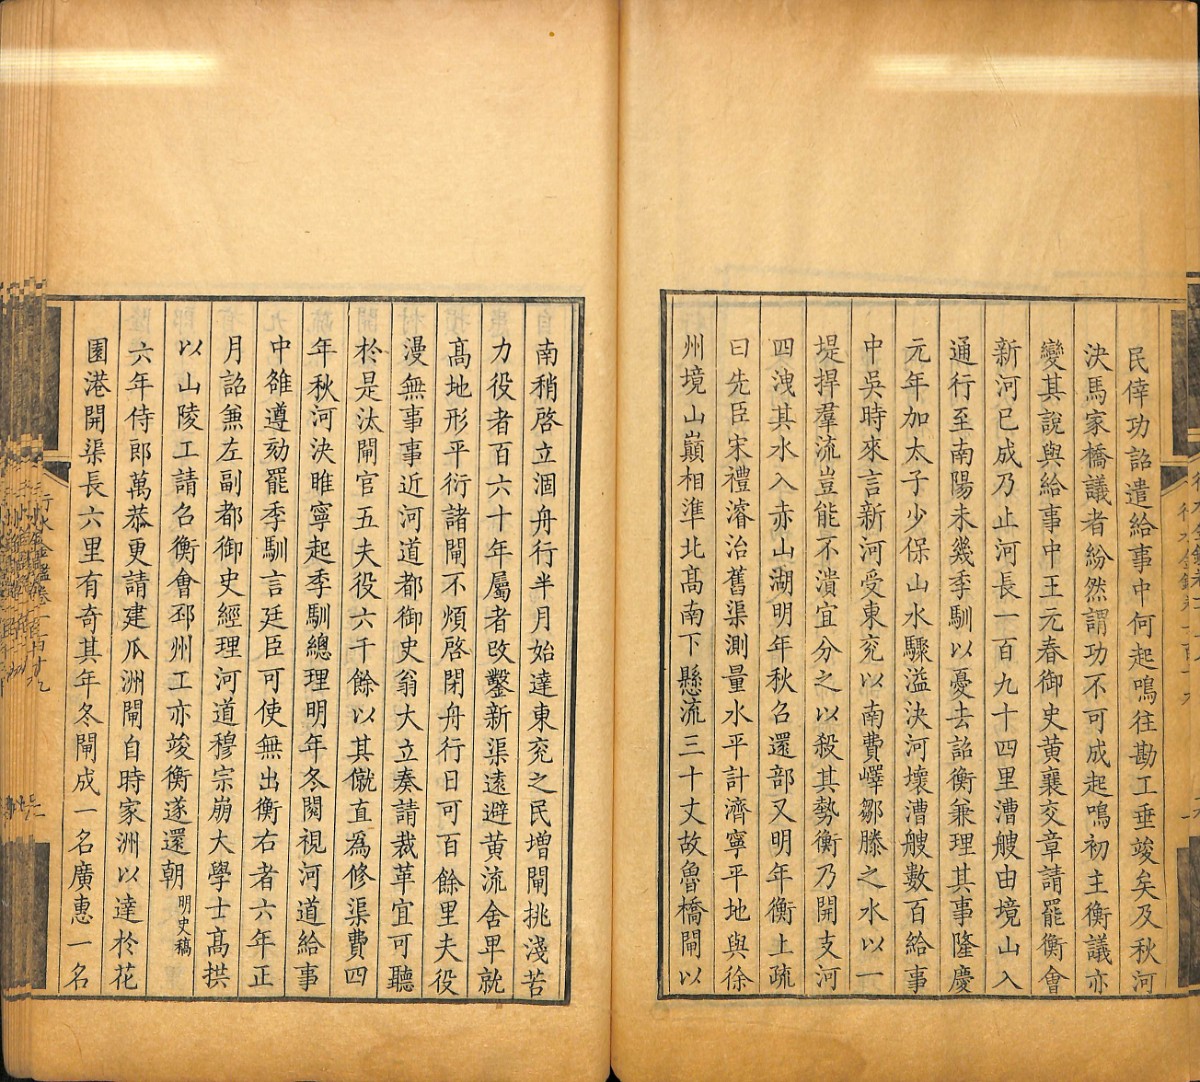 民倖功詔遣給事中何起鳴往勘工垂竣矣及秋河
決馬家橋議者紛然謂功不可成起鳴初主衡議亦
變其說與給事中王元春御史黃襄交章請罷衡會
新河已成乃止河長一百九十四里漕艘由境山入
通行至南陽未幾季馴以憂去詔衡兼理其事隆慶
元年加太子少保山水驟溢決河壞漕艘數百給事
中吳時來言新河受東兖以南費嶧鄒滕之水以一
堤捍羣流豈能不潰宜分之以殺其勢衡乃開支河
四洩其水入赤山湖明年秋召還部又明年衡上疏
曰先臣宋禮濬治舊渠測量水平計濟寧平地與徐
州境山巔相準北高南下懸流三十丈故魯橋閘以
南稍啓立涸舟行半月始達東兖之民增閘挑淺苦
力役者百六十年屬者改鑿新渠遠避黄流舍卑就
高地形平衍諸閘不煩啓閉舟行日可百餘里夫役
漫無事事近河道都御史翁大立奏請裁革宜可聽
於是汰閘官五夫役六千餘以其僦直為修渠費四
年秋河決睢寧起季馴總理明年冬閱視河道給事
中雒遵劾罷季馴言廷臣可使無出衡右者六年正
月詔兼左副都御史經理河道穆宗崩大學士高拱
以山陵工請召衡會邳州工亦竣衡遂還朝 明史稿
六年侍郎萬恭更請建瓜洲閘自時家洲以達於花
園港開渠長六里有奇其年冬閘成一名廣惠一名
行水金鑑卷一百十九